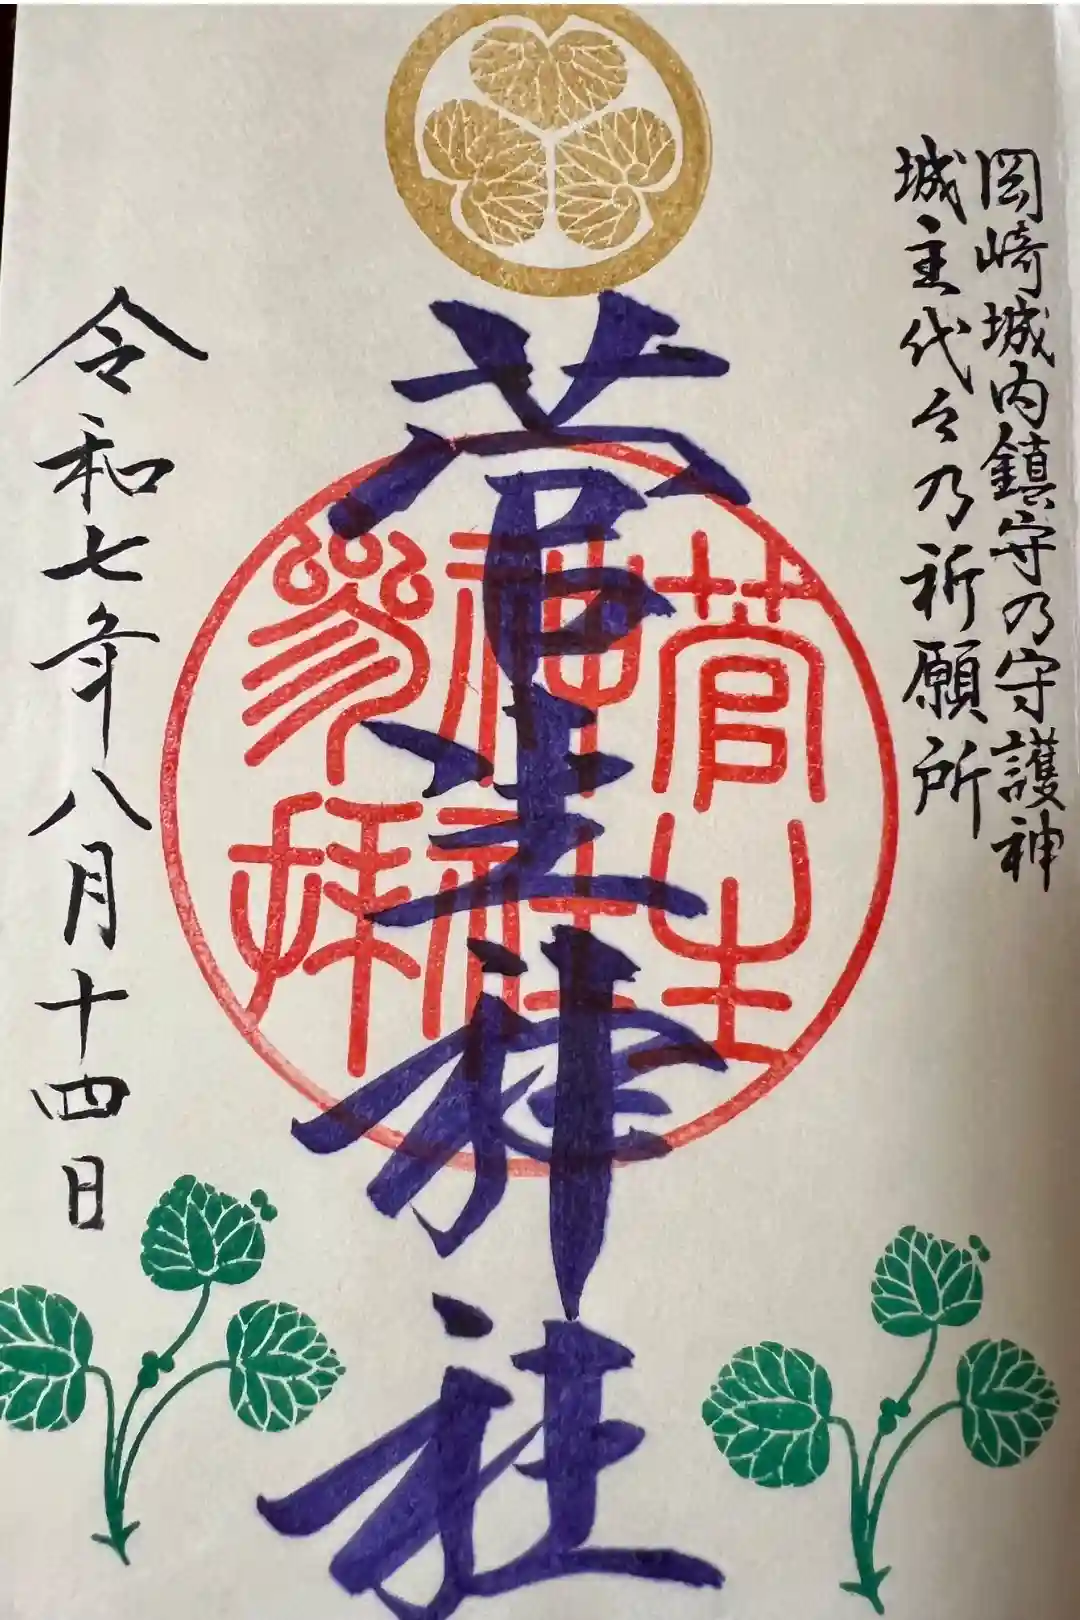 岡崎城内鎮守乃守護神
城主代々乃祈願所
菅生神社
菅生
神社
参拝
令和七年八月十四日